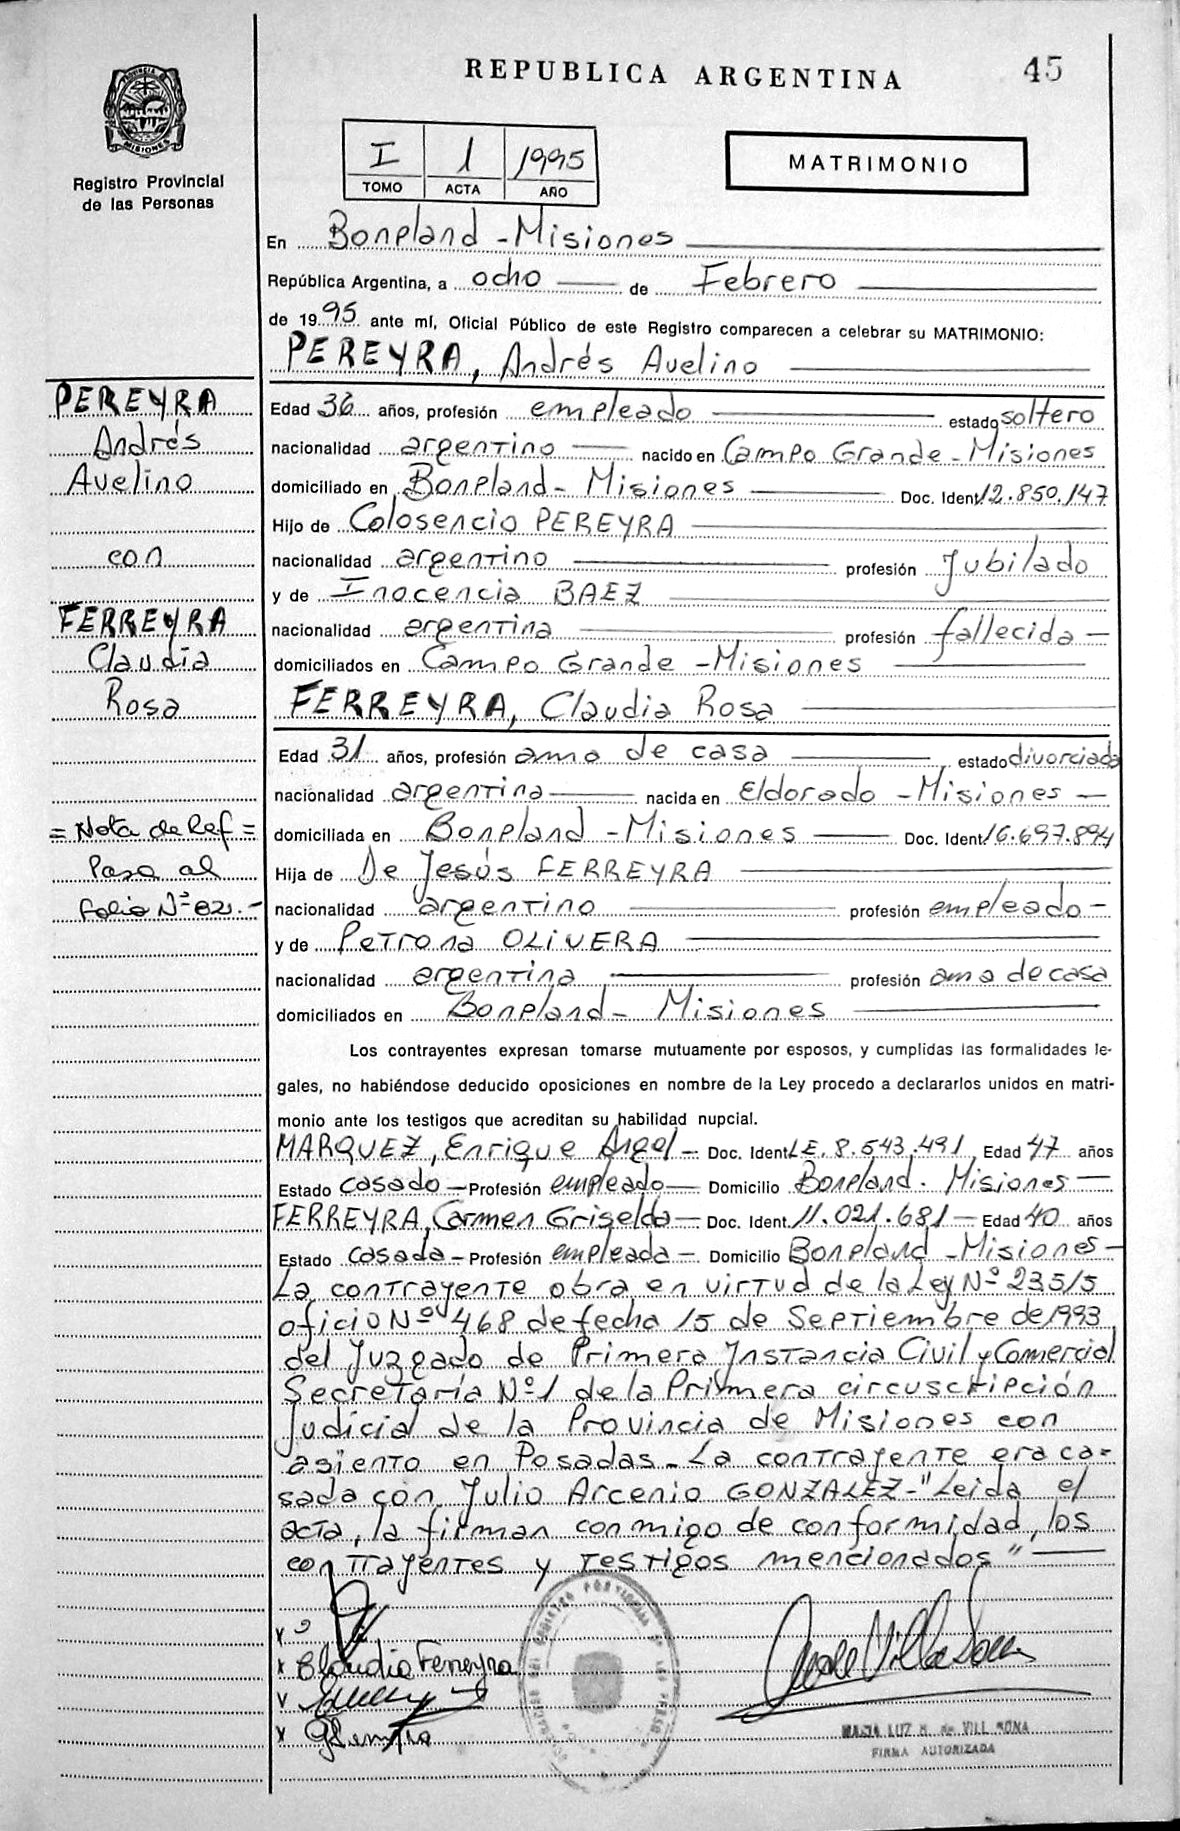 REPUBLICA ARGENTINA
45
PROVINCIA DE
MISIONES
Registro Provincial
de las Personas
I 1 1995
TOMO ACTA AÑO
MATRIMONIO
En Bonpland - Misiones
República Argentina, a ocho de Febrero
de 1995 ante mí, Oficial Público de este Registro comparecen a celebrar su MATRIMONIO:
PEREYRA, Andrés Avelino
PEREYRA
Andrés
Avelino
con
FERREYRA
Claudia
Rosa
= Nota de Ref =
Pasa al
folio Nº 021.-
Edad 36 años, profesión empleado estado soltero
nacionalidad argentino nacido en Campo Grande - Misiones
domiciliado en Bonpland - Misiones Doc. Ident. 12.850.147
Hijo de Colosencio PEREYRA
nacionalidad argentino profesión Jubilado
y de Inocencia BAEZ
nacionalidad argentina profesión fallecida -
domiciliados en Campo Grande - Misiones
FERREYRA, Claudia Rosa
Edad 31 años, profesión ama de casa estado divorciada
nacionalidad argentina nacida en Eldorado - Misiones -
domiciliada en Bonpland - Misiones Doc. Ident. 16.697.894
Hija de De Jesús FERREYRA
nacionalidad argentino profesión empleado -
y de Petrona OLIVERA
nacionalidad argentina profesión ama de casa
domiciliados en Bonpland - Misiones
Los contrayentes expresan tomarse mutuamente por esposos, y cumplidas las formalidades le-
gales, no habiéndose deducido oposiciones en nombre de la Ley procedo a declararlos unidos en matri-
monio ante los testigos que acreditan su habilidad nupcial.
MARQUEZ, Enrique Angel - Doc. Ident. L.E. 8.543.491 Edad 47 años
Estado casado - Profesión empleado - Domicilio Bonpland. Misiones -
FERREYRA, Carmen Griselda - Doc. Ident. 11.021.681 - Edad 40 años
Estado casada - Profesión empleada - Domicilio Bonpland - Misiones -
La contrayente obra en virtud de la Ley Nº 235/5
oficio Nº 468 de fecha 15 de Septiembre de 1993
del Juzgado de Primera Instancia Civil y Comercial
Secretaría Nº 1 de la Primera circuscripción
Judicial de la Provincia de Misiones con
asiento en Posadas - La contrayente era ca=
sada con Julio Arcenio GONZALEZ - "Leida el
acta, la firman conmigo de conformidad, los
contrayentes y testigos mencionados"
x
x Claudia Ferreyra
v
x
FIRMA AUTORIZADA